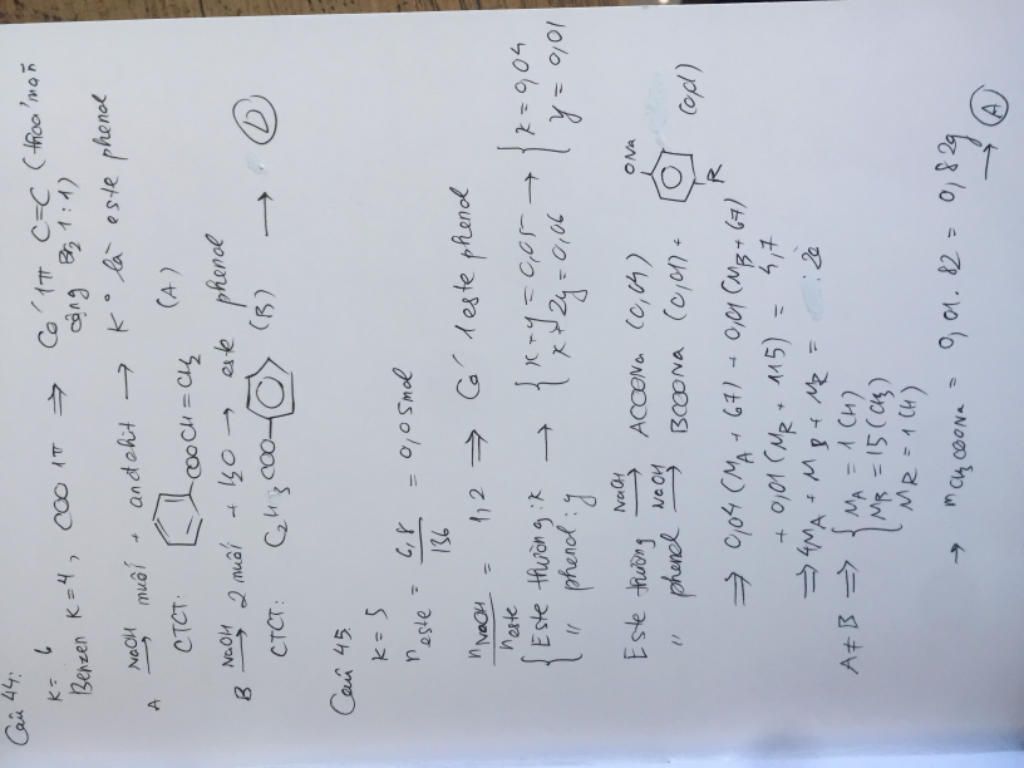 Câu 44:
K = 6
Benzen K = 4, COO 1π ⇒ Có 1π C=C (thoả mãn
cộng Br2 1:1)
A NaOH→ muối + anđehit → Kº là este phenol
CTCT: COOCH=CH2 (A)
B NaOH→ 2 muối + H2O → este phenol
CTCT: C2H3COO (B) → D
Câu 45.
K = 5
n este = 6,8/136 = 0,05mol
nNaOH/n este = 1,2 ⇒ Có 1 este phenol
{ Este thường : x → { x + y = 0,05 → { x = 0,04
" phenol : y x + 2y = 0,06 y = 0,01
Este thường NaOH→ ACOONa (0,04)
" phenol NaOH→ BCOONa (0,01) + ONa R (0,01)
⇒ 0,04 (MA + 67) + 0,01 (MB + 67)
+ 0,01 (MR + 115) = 4,7
⇒ 4MA + MB + MR = 20
A ≠ B ⇒ { MA = 1 (H)
MB = 15 (CH3)
MR = 1 (H)
→ mCH3COONa = 0,01 . 82 = 0,82g
→ A